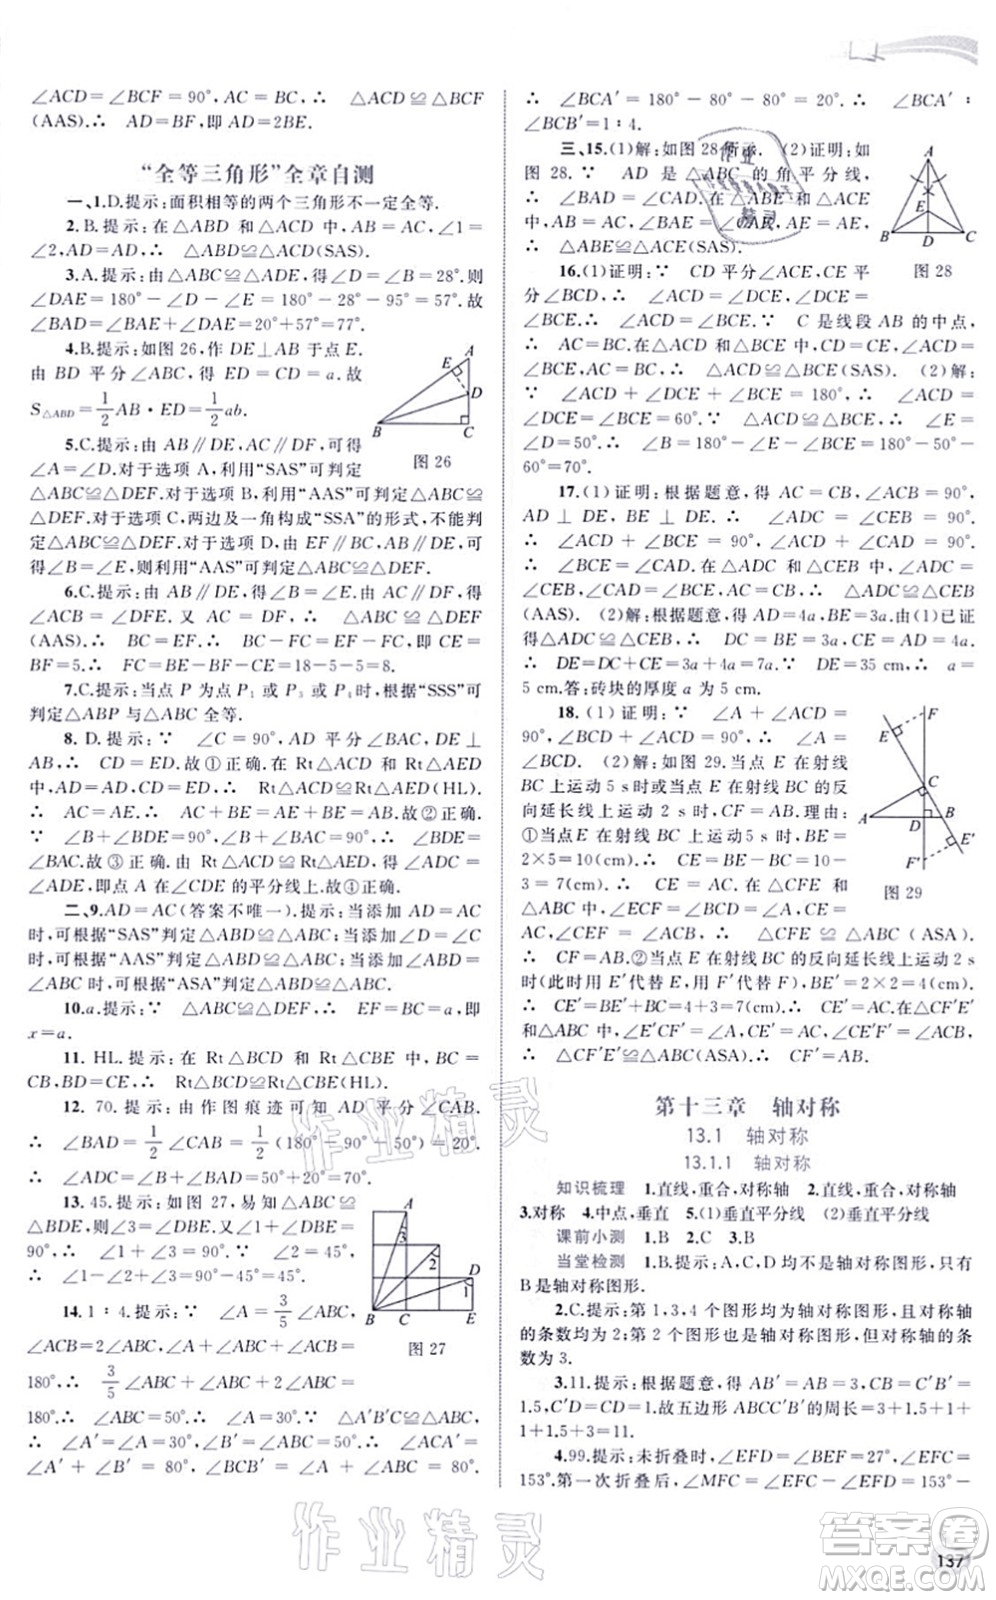 ∠ACD=∠BCF=90°,AC=BC,∴ △ACD≌△BCF
(AAS).∴ AD=BF,即 AD=2BE.
“全等三角形”全章自测
一、1.D.提示:面积相等的两个三角形不一定全等.
2.B.提示:在△ABD 和△ACD 中,AB=AC,∠1=
∠2,AD=AD,∴ △ABD≌△ACD(SAS).
3.A.提示:由△ABC≌△ADE,得∠E=∠C=28°.则
∠DAE=180°-∠D-∠E=180°-28°-95°=57°.故
∠BAD=∠BAE+∠DAE=20°+57°=77°.
4.B.提示:如图 26,作 DE⊥AB 于点 E.
由 BD 平分∠ABC,得 ED=CD=a.故
S△ABD=1/2AB·ED=1/2ab.
A
E
D
B
C
图 26
5.C.提示:由 AB∥DE,AC∥DF,可得
∠A=∠D.对于选项 A,利用“SAS”可判定
△ABC≌△DEF.对于选项 B,利用“AAS”可判定△ABC≌
△DEF.对于选项 C,两边及一角构成“SSA”的形式,不能判
定△ABC≌△DEF.对于选项 D,由 EF∥BC,AB∥DE,可
得∠B=∠E,所以利用“AAS”可判定△ABC≌△DEF.
6.C.提示:由 AB∥DE,得∠B=∠DEF.由 AC∥DF,得
∠ACB=∠DFE.又 AC=DF,∴ △ABC≌△DEF
(AAS).∴ BC=EF.∴ BC-FC=EF-FC,即 CE=
BF=5.∴ CF=BC-BF-CE=18-5-5=8.
7.C.提示:当点 P 为点 P₁ 或点 P₃ 时,根据“SSS”可
判定△ABP 与△ABC 全等.
8.D.提示:∵ ∠C=90°,AD 平分∠BAC,DE⊥
AB,∴ CD=ED.故①正确.在 Rt△ACD 和 Rt△AED
中,AD=AD,CD=ED,∴ Rt△ACD≌Rt△AED(HL).
∴ AC=AE.∴ AC+BE=AE+BE=AB.故②正确.
∵ ∠B+∠BDE=90°,∠B+∠BAC=90°,∴ ∠BDE=
∠BAC.故③正确.由 Rt△ACD≌Rt△AED,得∠ADC=
∠ADE,即点 A 在∠CDE 的平分线上.故④正确.
二、9.AD=AC(答案不唯一).提示:当添加 AD=AC
时,可根据“SAS”判定△ABD≌△ABC;当添加∠D=∠C
时,可根据“AAS”判定△ABD≌△ABC;当添加∠ABD=
∠ABC时,可根据“ASA”判定△ABD≌△ABC.
10.a.提示:∵ △ABC≌△DEF,∴ EF=BC=a,即
x=a.
11.HL.提示:在 Rt△BCD 和 Rt△CBE 中,BC=
CB,BD=CE,∴ Rt△BCD≌Rt△CBE(HL).
12.70.提示:由作图痕迹可知 AD 平分∠CAB.
∴ ∠BAD=1/2∠CAB=1/2(180°-90°-50°)=20°.
∴ ∠ADC=∠B+∠BAD=50°+20°=70°.
13.45.提示:如图 27,易知△ABC≌
△BDE,则∠1=∠3.∵ ∠3+∠ABC=
90°,∴ ∠1+∠ABC=90°.又∠2=45°,
∴ ∠1+∠ABC-∠2=90°-45°=45°.
A
3
2
D
1
B
C
E
图 27
14.1∶4.提示:∵ ∠A=3/5∠ABC,
∠ACB=2∠ABC,∠A+∠ABC+∠ACB=
180°,∴ 3/5∠ABC+∠ABC+2∠ABC=
180°.∴ ∠ABC=50°.∴ ∠A=30°.∵ △A′B′C≌△ABC,
∴ ∠A′=∠A=30°,∠B′=∠ABC=50°.∴ ∠ACA′=
∠A′+∠B′=80°,∠BCB′=∠A+∠ABC=80°.
∴ ∠BCA′=180°-80°-80°=20°.∴ ∠BCA′∶
∠BCB′=1∶4.
三、15.(1)解:如图 28所示.(2)证明:如
图 28.∵ AD 是△ABC 的角平分线,
∴ ∠BAD=∠CAD.在△ABE 和△ACE
中,AB=AC,∠BAE=∠CAE,AE=AE,
∴ △ABE≌△ACE(SAS).
A
E
B
D
C
图 28
16.(1)证明:∵ CD 平分∠ACE,CE 平
分∠BCD,∴ ∠ACD=∠DCE,∠DCE=
∠BCE.∴ ∠ACD=∠BCE.∵ C 是线段 AB 的中点,
∴ AC=BC.在△ACD 和△BCE 中,AC=BC,∠ACD=
∠BCE,CD=CE,∴ △ACD≌△BCE(SAS).(2)解:
∵ ∠ACD+∠DCE+∠BCE=180°,∠ACD=
∠DCE=∠BCE,∴ ∠BCE=60°.∵ △ACD≌△BCE,
∴ ∠E=∠D=50°.∴ ∠B=180°-∠E-∠BCE=180°-50°-
60°=70°.
17.(1)证明:根据题意,得 AC=CB,∠ACB=90°,
AD⊥DE,BE⊥DE.∴ ∠ADC=∠CEB=90°.
∴ ∠ACD+∠BCE=90°,∠ACD+∠CAD=90°.
∴ ∠BCE=∠CAD.在△ADC 和△CEB 中,∠ADC=
∠CEB,∠CAD=∠BCE,AC=CB,∴ △ADC≌△CEB
(AAS).(2)解:根据题意,得 AD=4a,BE=3a.由(1)已证
得△ADC≌△CEB,∴ DC=BE=3a,AD=CE=4a.
∴ DE=DC+CE=7a.∵ DE=35 cm,∴ a=
5 cm.答:砖块的厚度 a 为 5 cm.
18.(1)证明:∵ ∠A+∠ACD=
90°,∠BCD+∠ACD=90°,∴ ∠A=
∠BCD.(2)解:如图 29.当点 E 在射线
BC 上运动5s或当点 E 在射线 BC 的反
向延长线上运动 2 s 时,CF=AB.理由:
①当点E 在射线 BC 上运动5 s时,BE=
2×5=10(cm),∴ CE=BE-BC=10-
3=7(cm).∴ CE=AC.在△CFE 和
△ABC中,∠ECF=∠BCD=∠A,CE=
AC,∠CEF=∠ACB,∴ △CFE≌△ABC(ASA).
∴ CF=AB.②当点 E 在射线 BC 的反向延长线上运动 2 s
时(此时用 E′代替 E,F′代替 F),BE′=2×2=4(cm),
∴ CE′=BE′+BC=4+3=7(cm).∴ CE′=AC.在△CF′E′
和△ABC中,∠E′CF′=∠BCD=∠A,CE′=AC,∠CE′F′=∠ACB,
∴ △CF′E′≌△ABC(ASA).∴ CF′=AB.
F
E
C
A
D
B
E′
F′
图 29
第十三章 轴对称
13.1 轴对称
13.1.1 轴对称
知识梳理 1.直线,重合,对称轴 2.直线,重合,对称轴
3.对称 4.中点,垂直 5.(1)垂直平分线 (2)垂直平分线
课前小测 1.B 2.C 3.B
当堂检测 1.B.提示:A,C,D 均不是轴对称图形,只有
B是轴对称图形.
2.C.提示:第 1,3,4 个图形均为轴对称图形,且对称轴
的条数均为 2;第 2 个图形也是轴对称图形,但对称轴的条
数为 3.
3.11.提示:根据题意,得 AB′=AB=3,B′C′=BC=
1.5,C′D=CD=1.故五边形 ABCC′B′的周长=3+1.5+1
+1+1.5+3=11.
4.99.提示:未折叠时,∠EFD=∠BEF=27°,∠EFC=
153°.第一次折叠后,∠MFC=∠EFC-∠EFD=153°-
137
作业精灵
作业精灵
答案圈
MXQE.COM